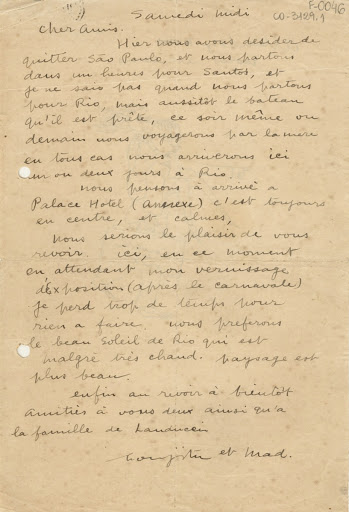 F-0046
CO-3129.1
Samedi midi
Cher Amis.
Hier nous avons desider de
quitter São Paulo, et nous partons
dans un heures pour Santos, et
je ne sais pas quand nous partons
pour Rio, mais aussitôt le bateau
qu'il est prête, ce soir même ou
demain nous voyagerons par la mere
en tous cas nous arriverons ici
un ou deux jours à Rio.
nous pensons à arrivé a
Palace Hotel (Annexe) c'est toujours
en centre, et calmes,
nous serions le plaisir de vous
revoir. ici, en ce moment
en attendant mon vernissage
d'exposition (après le carnavale)
je perd trop de temps pour
rien a faire. nous preferons
le beau Soleil de Rio qui est
malgré très chaud. paysage est
plus beau.
enfin au revoir à bientôt
Amitiés à vous deux ainsi qu'a
la famille de
et Mad.